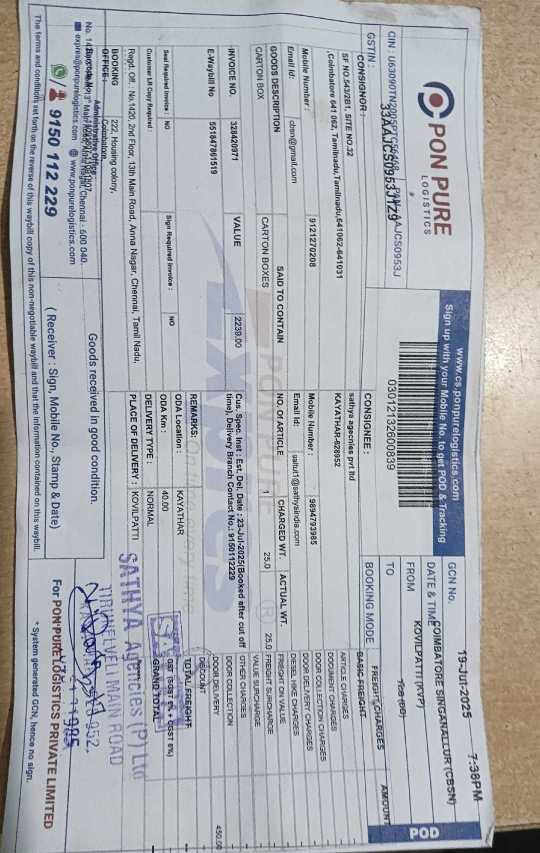 PON PURE
LOGISTICS
www.cs.ponpurelogistics.com
Sign up with your Mobile No. to get POD & Tracking
030121132600839
GCN No.
DATE & TIME
19-Jul-2025 7:38PM
FROM
COIMBATORE SINGANALLUR (CBSN)
TO
KOVILPATTI (KVP)
BOOKING MODE
POD
CIN : U63090TN2005PTC
GSTIN :
33AAJCS0953J1Z9
CONSIGNOR :
SF NO.543/2B1, SITE NO.32
,Coimbatore 641 062, Tamilnadu,Tamilnadu,641062-641031
Mobile Number : 9121270208
Email Id: cbsn@gmail.com
CONSIGNEE :
sathya agencies pvt ltd
KAYATHAR-628952
Mobile Number : 9894793985
Email Id: @sathyaindia.com
GOODS DESCRIPTION
SAID TO CONTAIN
NO. OF ARTICLE
CHARGED WT.
ACTUAL WT.
CARTON BOX
CARTON BOXES
1
25.0
25.0
FREIGHT CHARGES
AMOUNT
BASIC FREIGHT
ARTICLE CHARGES
DOCUMENT CHARGES
DOOR COLLECTION CHARGES
DOOR DELIVERY CHARGES
DIESEL HIKE CHARGES
FREIGHT ON VALUE
FREIGHT SURCHARGE
VALUE SURCHARGE
OTHER CHARGES
DOOR COLLECTION
DOOR DELIVERY 450.00
DISCOUNT
TOTAL FREIGHT
GST (SGST 6% + CGST 6%)
GRAND TOTAL
INVOICE NO. 328420971
VALUE 2239.00
E-Waybill No 551847861519
Cus. Spec. Inst : Est. Del. Date : 23-Jul-2025(Booked after cut off
time), Delivery Branch Contact No.: 9150112229
REMARKS:
Seal Required Invoice : NO
Sign Required Invoice : NO
Customer LR Copy Required :
ODA Location : KAYATHAR
ODA Km : 40.00
DELIVERY TYPE : NORMAL
PLACE OF DELIVERY : KOVILPATTI
Regd. Off. : No.1420, 2nd Floor, 13th Main Road, Anna Nagar, Chennai, Tamil Nadu,
BOOKING
OFFICE :
222, Housing colony,
Coimbatore,
Administrative Office
Anna Nagar, Chennai - 600 040.
express@ponpurelogistics.com www.ponpurelogistics.com
9150 112 229
Goods received in good condition.
( Receiver : Sign, Mobile No., Stamp & Date)
SATHYA Agencies (P) Ltd
TIRUNELVELI MAIN ROAD
For PON PURE LOGISTICS PRIVATE LIMITED
The terms and conditions set forth on the reverse of this waybill copy of this non-negotiable waybill and that the information contained on this waybill.
* System generated GCN, hence no sign.